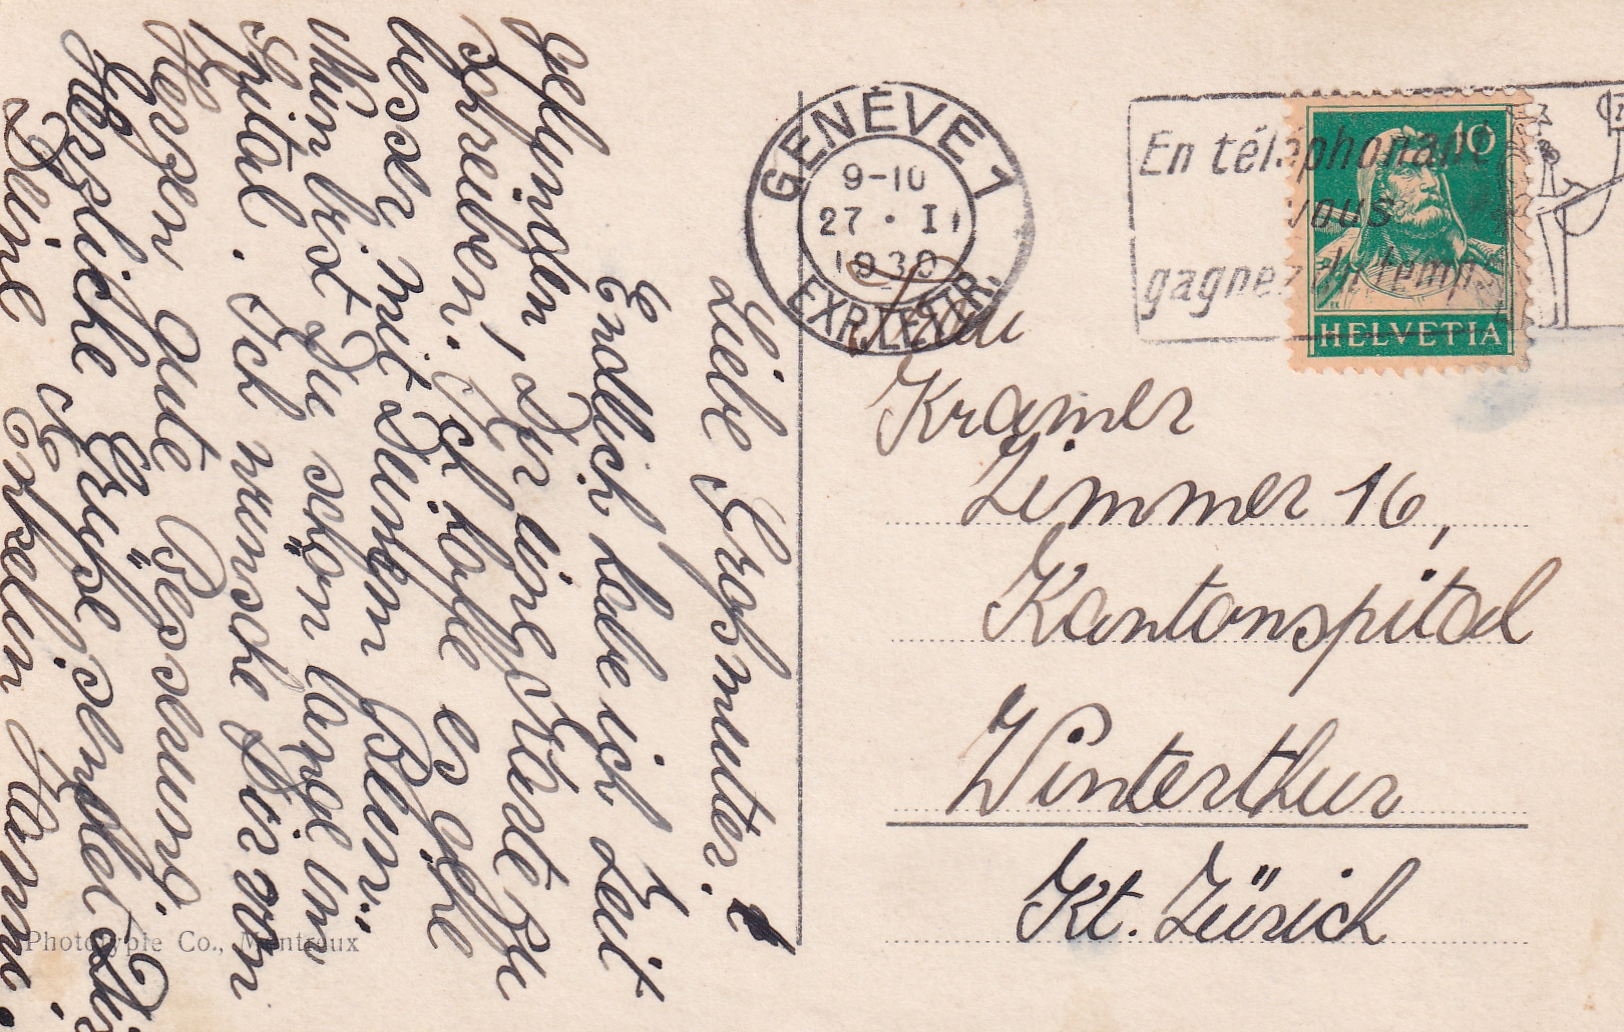 Liebe Grosmutter!
Endlich habe ich Zeit
gefunden, Dir eine Karte zu
schreiben. Ich hoffe es gehe
besser mit Deinem Bein.
Nun bist Du schon lange im
Spital. Ich wünsche Dir von
Herzen gute Besserung.
Herzliche Grüße sendet Dir
Deine Enkelin
Photolypie Co., Montreux
GENÈVE 1
9-10
27 · I
1930
EXP. LETTR.
En téléphonant
vous
gagnez du temps
10
HELVETIA
Frau
Kramer
Zimmer 16,
Kantonspital
Winterthur
Kt. Zürich